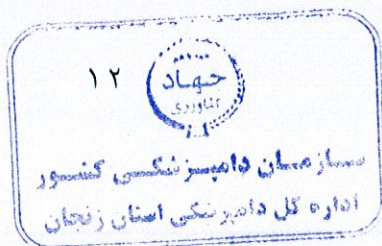 ۱۲
جهاد
کشاورزی
سازمان دامپزشکی کشور
اداره کل دامپزشکی استان زنجان